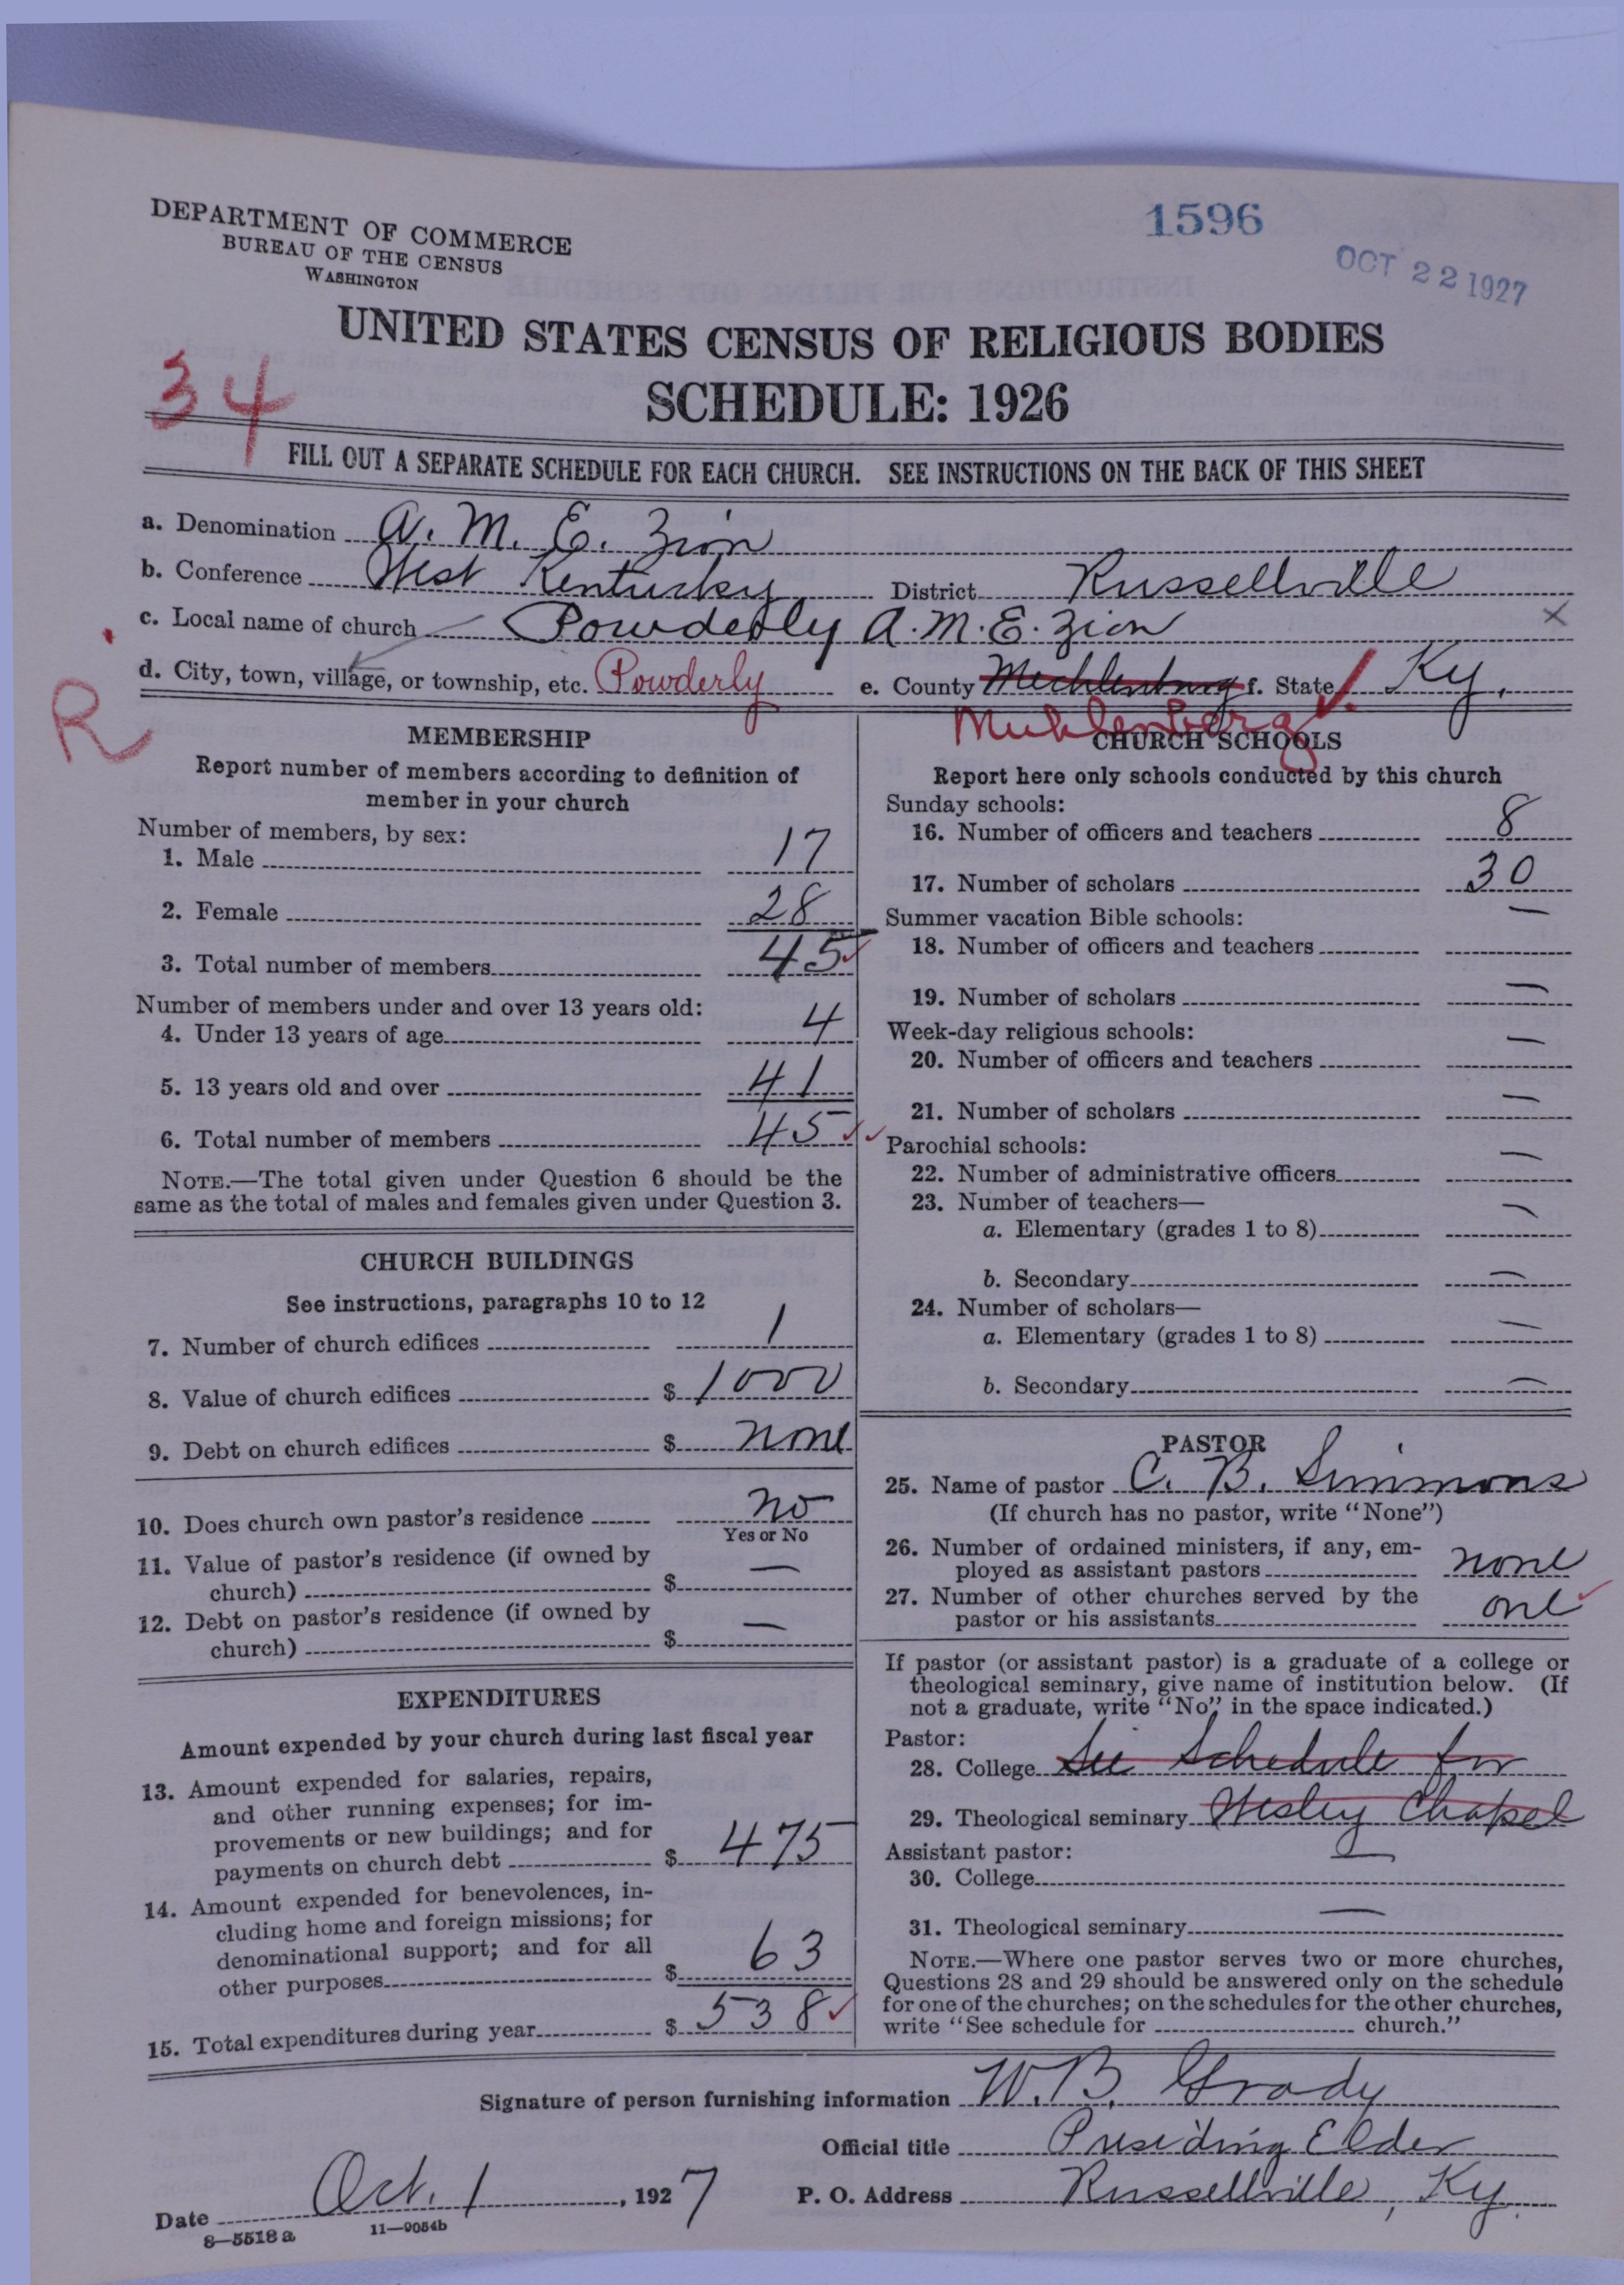 DEPARTMENT OF COMMERCE
BUREAU OF THE CENSUS
WASHINGTON
1596
OCT 22 1927
UNITED STATES CENSUS OF RELIGIOUS BODIES
SCHEDULE: 1926
34
FILL OUT A SEPARATE SCHEDULE FOR EACH CHURCH. SEE INSTRUCTIONS ON THE BACK OF THIS SHEET
a. Denomination A. M. E. Zion
b. Conference West Kentucky District Russellville
c. Local name of church Powderly A.M.E. Zion X
d. City, town, village, or township, etc. Powderly e. County Mecklenburg f. State Ky.
Muhlenberg
R
MEMBERSHIP
Report number of members according to definition of
member in your church
Number of members, by sex:
1. Male 17
2. Female 28
3. Total number of members 45
Number of members under and over 13 years old:
4. Under 13 years of age 4
5. 13 years old and over 41
6. Total number of members 45
NOTE.—The total given under Question 6 should be the
same as the total of males and females given under Question 3.
CHURCH BUILDINGS
See instructions, paragraphs 10 to 12
7. Number of church edifices 1
8. Value of church edifices $ 1000
9. Debt on church edifices $ none
10. Does church own pastor's residence no
Yes or No
11. Value of pastor's residence (if owned by
church) $ —
12. Debt on pastor's residence (if owned by
church) $ —
EXPENDITURES
Amount expended by your church during last fiscal year
13. Amount expended for salaries, repairs,
and other running expenses; for im-
provements or new buildings; and for
payments on church debt $ 475
14. Amount expended for benevolences, in-
cluding home and foreign missions; for
denominational support; and for all
other purposes $ 63
15. Total expenditures during year $ 538
CHURCH SCHOOLS
Report here only schools conducted by this church
Sunday schools:
16. Number of officers and teachers 8
17. Number of scholars 30
Summer vacation Bible schools:
18. Number of officers and teachers —
19. Number of scholars —
Week-day religious schools:
20. Number of officers and teachers —
21. Number of scholars —
Parochial schools:
22. Number of administrative officers —
23. Number of teachers—
a. Elementary (grades 1 to 8) —
b. Secondary —
24. Number of scholars—
a. Elementary (grades 1 to 8) —
b. Secondary —
PASTOR
25. Name of pastor C. B. Simmons
(If church has no pastor, write "None")
26. Number of ordained ministers, if any, em-
ployed as assistant pastors none
27. Number of other churches served by the
pastor or his assistants one
If pastor (or assistant pastor) is a graduate of a college or
theological seminary, give name of institution below. (If
not a graduate, write "No" in the space indicated.)
Pastor:
28. College See Schedule for
29. Theological seminary Wesley Chapel
Assistant pastor:
30. College —
31. Theological seminary —
NOTE.—Where one pastor serves two or more churches,
Questions 28 and 29 should be answered only on the schedule
for one of the churches; on the schedules for the other churches,
write "See schedule for church."
Signature of person furnishing information W. B. Grady
Official title Presiding Elder
Date Oct. 1, 1927 P. O. Address Russellville, Ky.
8—5518 a 11—9054b